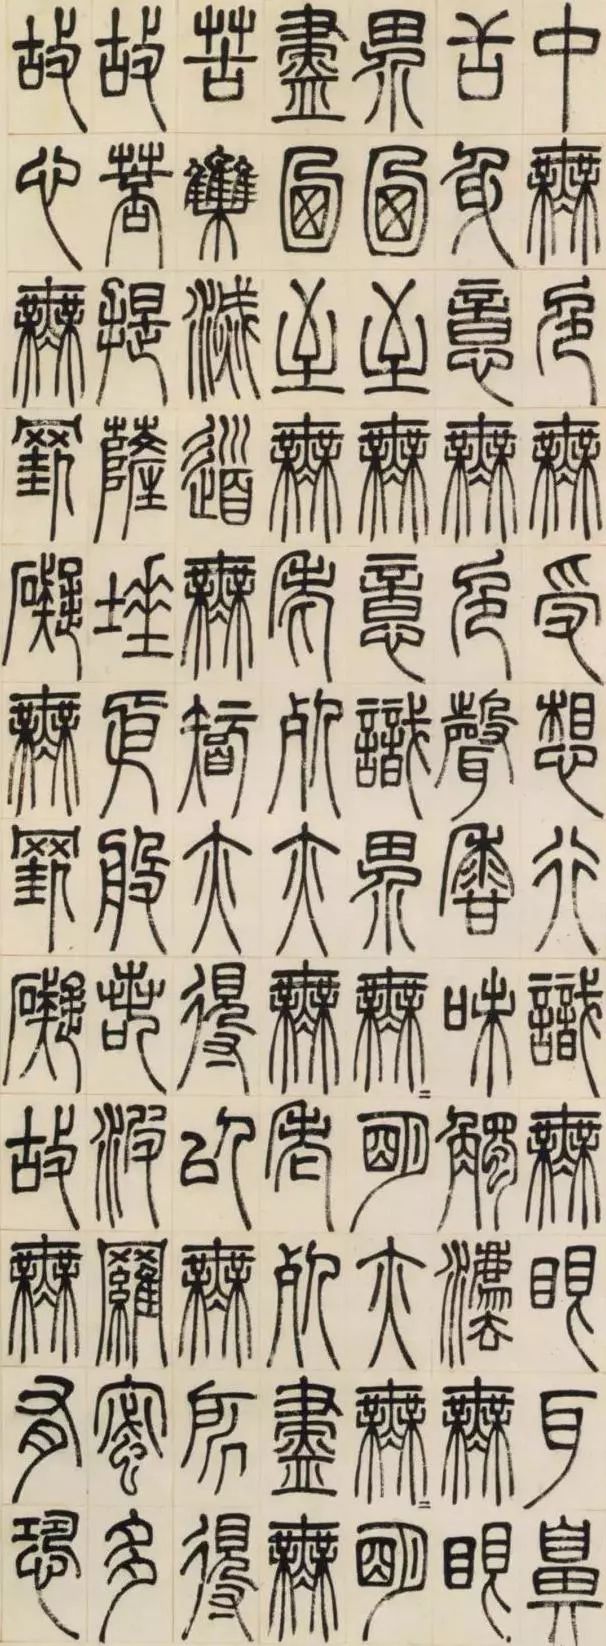 中無色無受想行識無眼耳鼻
舌身意無色聲香味觸法無眼
界迺至無意識界無〻明亦無〻明
盡迺至無老死亦無老死盡無
苦集滅道無智亦得以無所得
故菩提薩埵依般若波羅蜜多
故心無罣礙無罣礙故無有恐